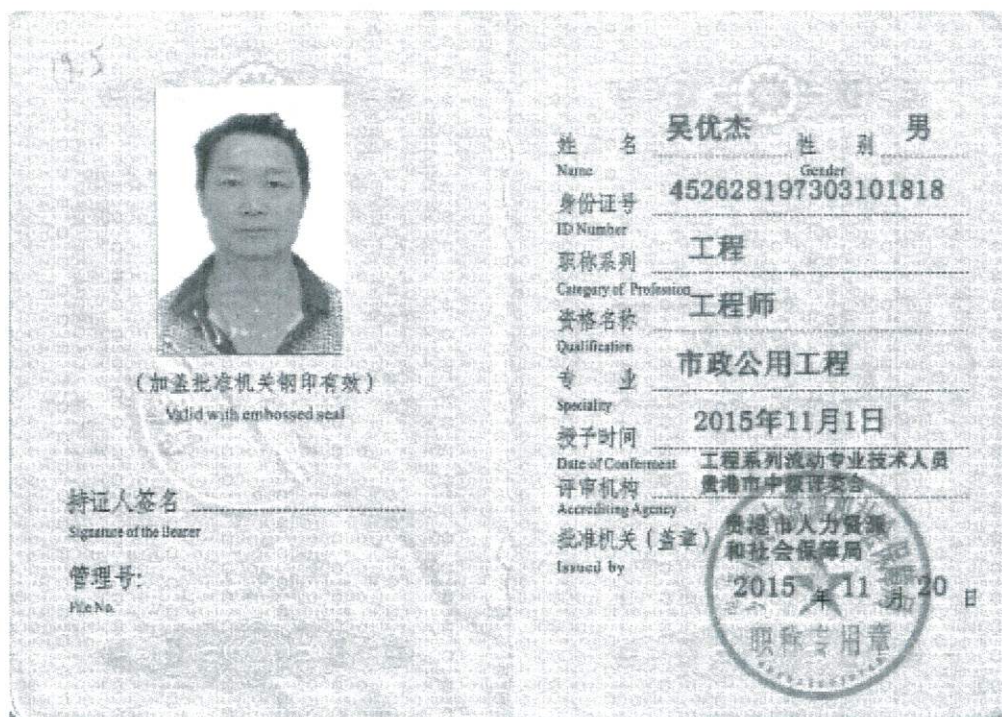 19.5
(加盖批准机关钢印有效)
Valid with embossed seal
持证人签名
Signature of the Bearer
管理号:
File No.
姓 名 吴优杰 性 别 男
Name Gender
身份证号 452628197303101818
ID Number
职称系列 工程
Category of Profession
资格名称 工程师
Qualification
专 业 市政公用工程
Speciality
授予时间 2015年11月1日
Date of Conferment
工程系列流动专业技术人员
评审机构 贵港市中级评委会
Accrediting Agency
批准机关(盖章) 贵港市人力资源
和社会保障局
Issued by
2015 年 11 月 20 日
职称专用章